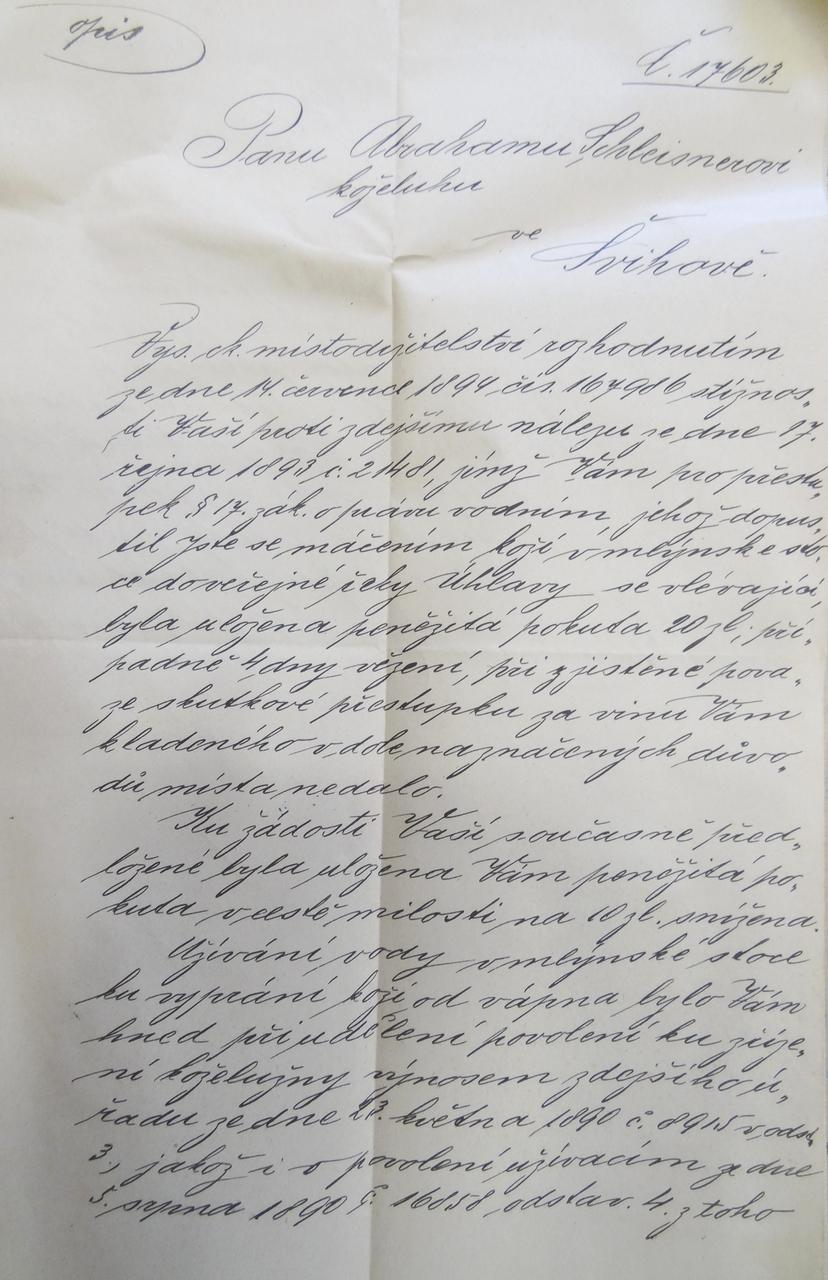 opis
Č. 17603.
Panu Abrahamu Schleisnerovi
koželuhu
ve Švihově.
Vys. ck. místodržitelství rozhodnutím
ze dne 14. července 1894 čís. 167986 stížnos„
ti Vaší proti zdejšímu nálezu ze dne 17.
října 1893 č. 21481, jímž Vám pro přestu„
pek § 17. zák. o právu vodním, jehož dopus„
til jste se máčením koží v mlýnské sto„
ce do veřejné řeky Úhlavy se vlévající,
byla uložena peněžitá pokuta 20 zl., pří„
padně 4 dny vězení, při zjištěné pova„
ze skutkové přestupku za vinu Vám
kladeného v dole naznačených důvo„
dů místa nedalo.
Ku žádosti Vaší současně před„
ložené byla uložena Vám peněžitá po„
kuta v cestě milosti na 10 zl. snížena.
Užívání vody v mlýnské stoce
ku vyprání koží od vápna bylo Vám
hned při udělení povolení ku zříze„
ní koželužny výnosem zdejšího ú„
řadu ze dne 23. května 1890 č. 8915 v odst.
3., jakož i v povolení užívacím ze dne
5. srpna 1890 č. 16858, odstav. 4. z toho